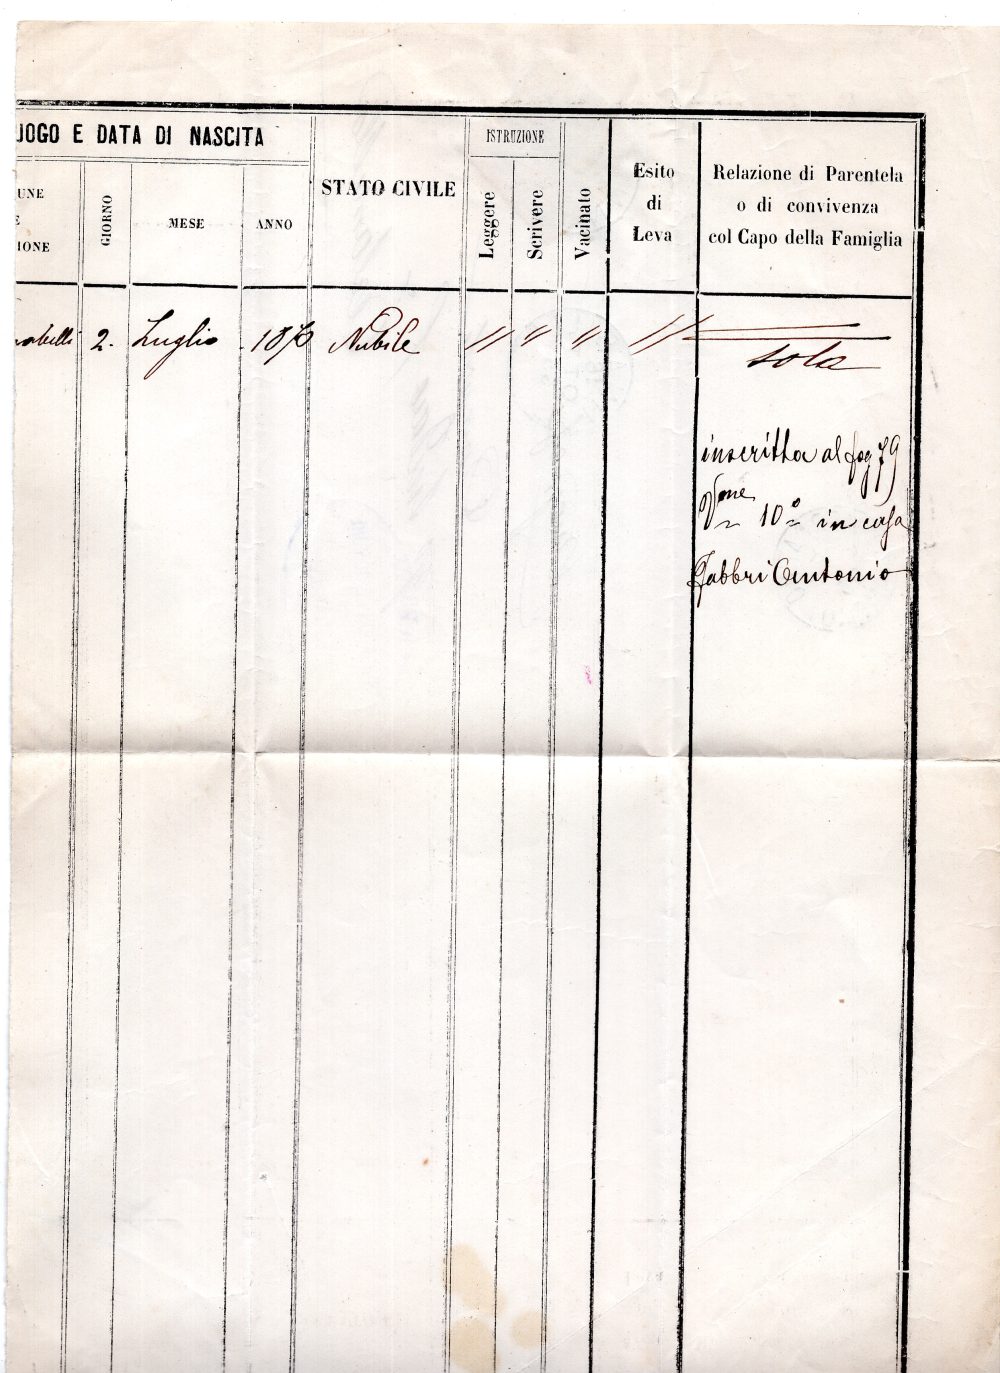 UOGO E DATA DI NASCITA
UNE
E
IONE
GIORNO
MESE
ANNO
STATO CIVILE
ISTRUZIONE
Leggere
Scrivere
Vacinato
Esito
di
Leva
Relazione di Parentela
o di convivenza
col Capo della Famiglia
2. Luglio Nubile " " " "
sola
inscritta al fog 79
10° in casa
Fabbri Antonio